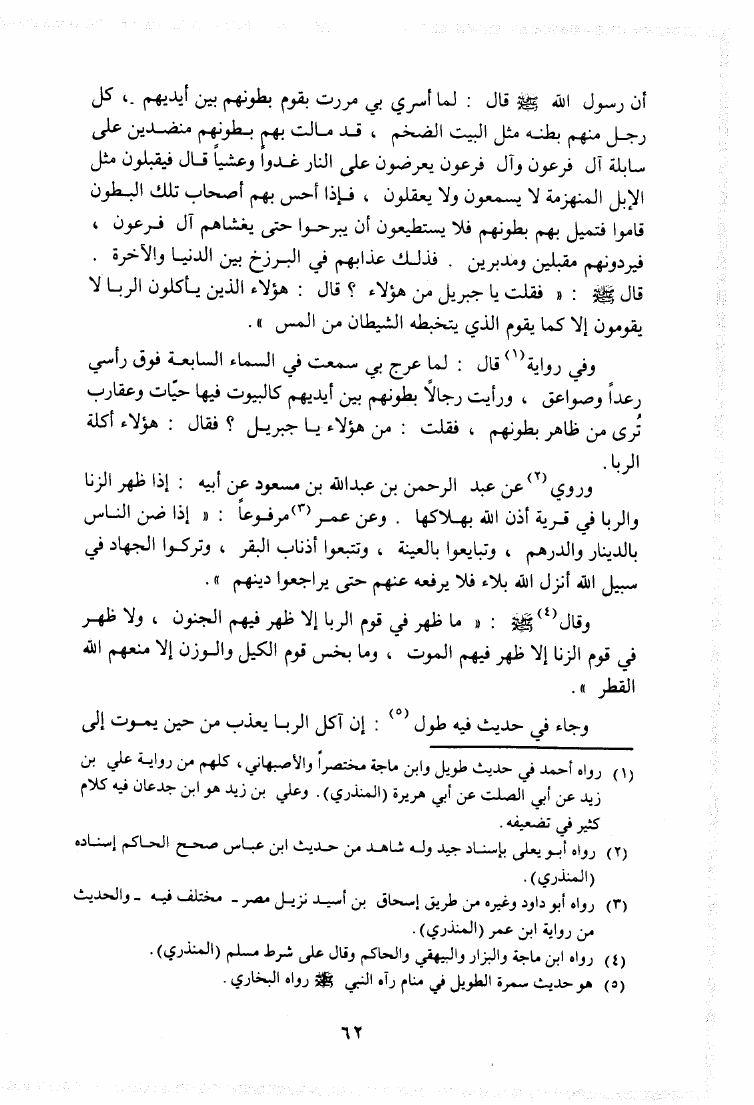 أن رسول الله ﷺ قال : لما أسري بي مررت بقوم بطونهم بين أيديهم ، كل
رجل منهم بطنه مثل البيت الضخم ، قد مالت بهم بطونهم منضدين على
سابلة آل فرعون وآل فرعون يعرضون على النار غدواً وعشياً قال فيقبلون مثل
الإبل المنهزمة لا يسمعون ولا يعقلون ، فإذا أحس بهم أصحاب تلك البطون
قاموا فتميل بهم بطونهم فلا يستطيعون أن يبرحوا حتى يغشاهم آل فرعون ،
فيردونهم مقبلين ومدبرين . فذلك عذابهم في البرزخ بين الدنيا والآخرة .
قال ﷺ : « فقلت يا جبريل من هؤلاء ؟ قال : هؤلاء الذين يأكلون الربا لا
يقومون إلا كما يقوم الذي يتخبطه الشيطان من المس » .
وفي رواية(١) قال : لما عرج بي سمعت في السماء السابعة فوق رأسي
رعداً وصواعق ، ورأيت رجالاً بطونهم بين أيديهم كالبيوت فيها حيّات وعقارب
تُرى من ظاهر بطونهم ، فقلت : من هؤلاء يا جبريل ؟ فقال : هؤلاء أكلة
الربا .
وروي(٢) عن عبد الرحمن بن عبدالله بن مسعود عن أبيه : إذا ظهر الزنا
والربا في قرية أذن الله بهلاكها . وعن عمر(٣) مرفوعاً : « إذا ضن الناس
بالدينار والدرهم ، وتبايعوا بالعينة ، وتتبعوا أذناب البقر ، وتركوا الجهاد في
سبيل الله أنزل الله بلاء فلا يرفعه عنهم حتى يراجعوا دينهم » .
وقال(٤) ﷺ : « ما ظهر في قوم الربا إلا ظهر فيهم الجنون ، ولا ظهر
في قوم الزنا إلا ظهر فيهم الموت ، وما بخس قوم الكيل والوزن إلا منعهم الله
القطر » .
وجاء في حديث فيه طول(٥) : إن آكل الربا يعذب من حين يموت إلى
(١) رواه أحمد في حديث طويل وابن ماجة مختصراً والأصبهاني ، كلهم من رواية علي بن
زيد عن أبي الصلت عن أبي هريرة (المنذري) . وعلي بن زيد هو ابن جدعان فيه كلام
كثير في تضعيفه .
(٢) رواه أبو يعلى بإسناد جيد وله شاهد من حديث ابن عباس صحح الحاكم إسناده
(المنذري) .
(٣) رواه أبو داود وغيره من طريق إسحاق بن أسيد نزيل مصر - مختلف فيه - والحديث
من رواية ابن عمر (المنذري) .
(٤) رواه ابن ماجة والبزار والبيهقي والحاكم وقال على شرط مسلم (المنذري) .
(٥) هو حديث سمرة الطويل في منام رآه النبي ﷺ رواه البخاري .
٦٢